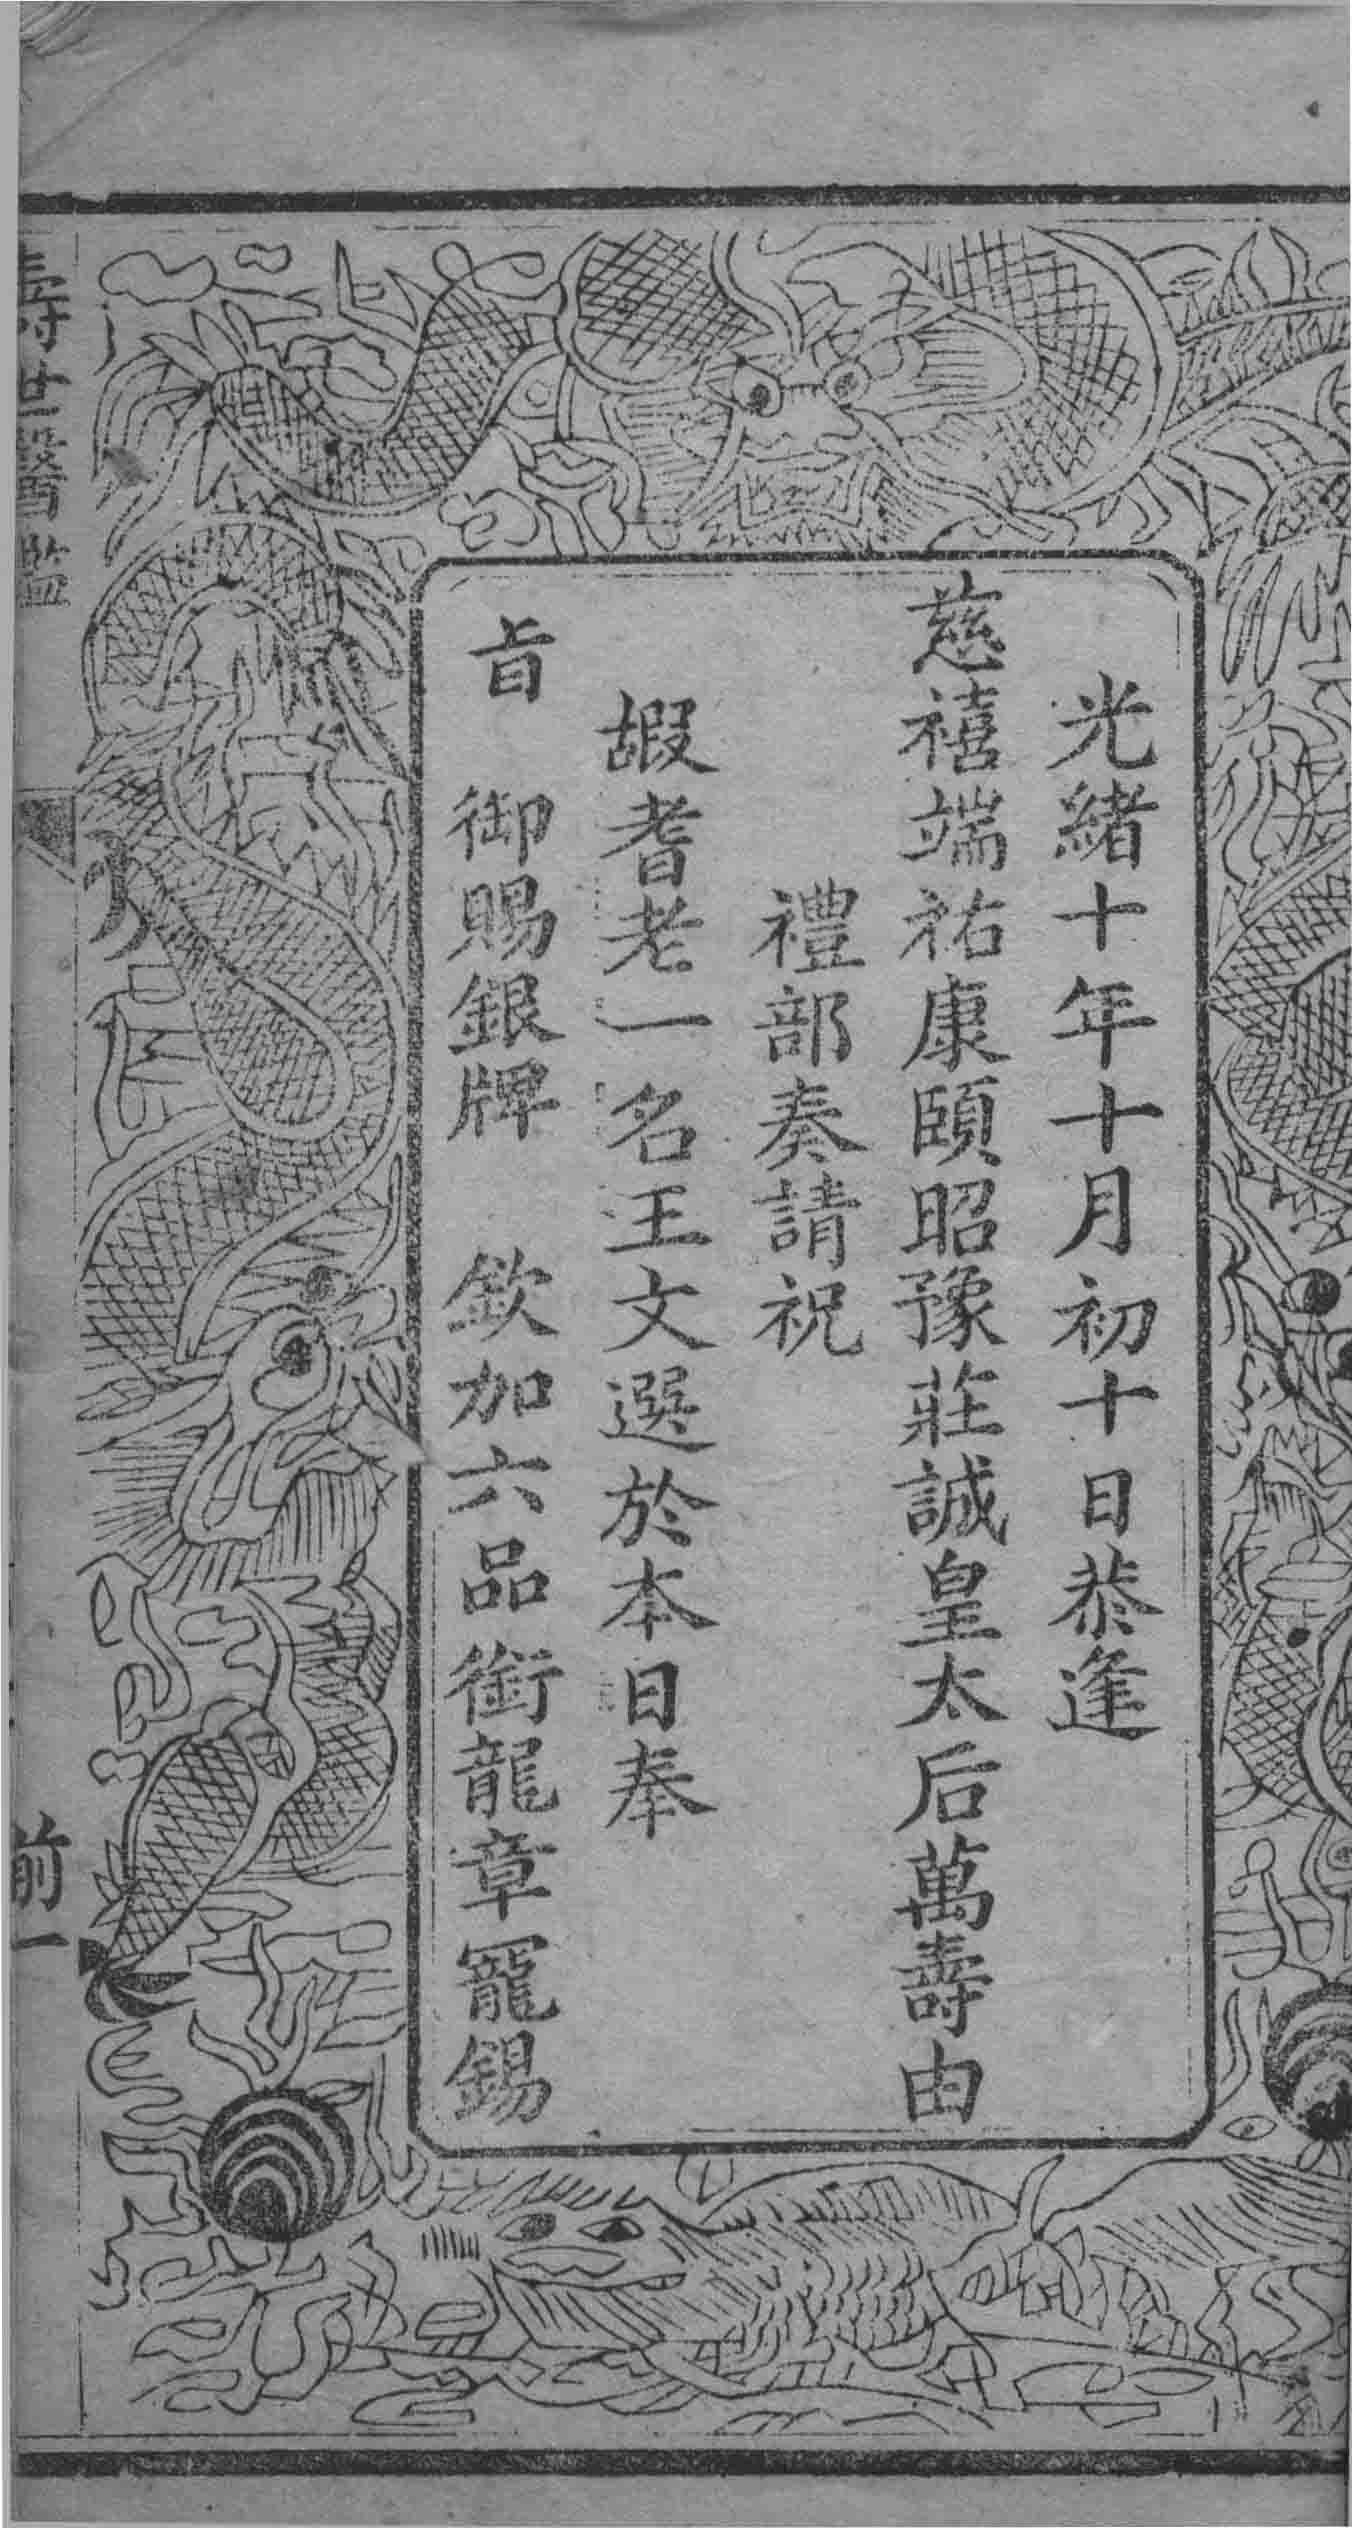 光緒十年十月初十日恭逢
慈禧端祐康頤昭豫莊誠皇太后萬壽由
禮部奏請祝
嘏耆老一名王文選於本日奉
旨 御賜銀牌 欽加六品銜龍章寵錫
壽世醫鑑
前一